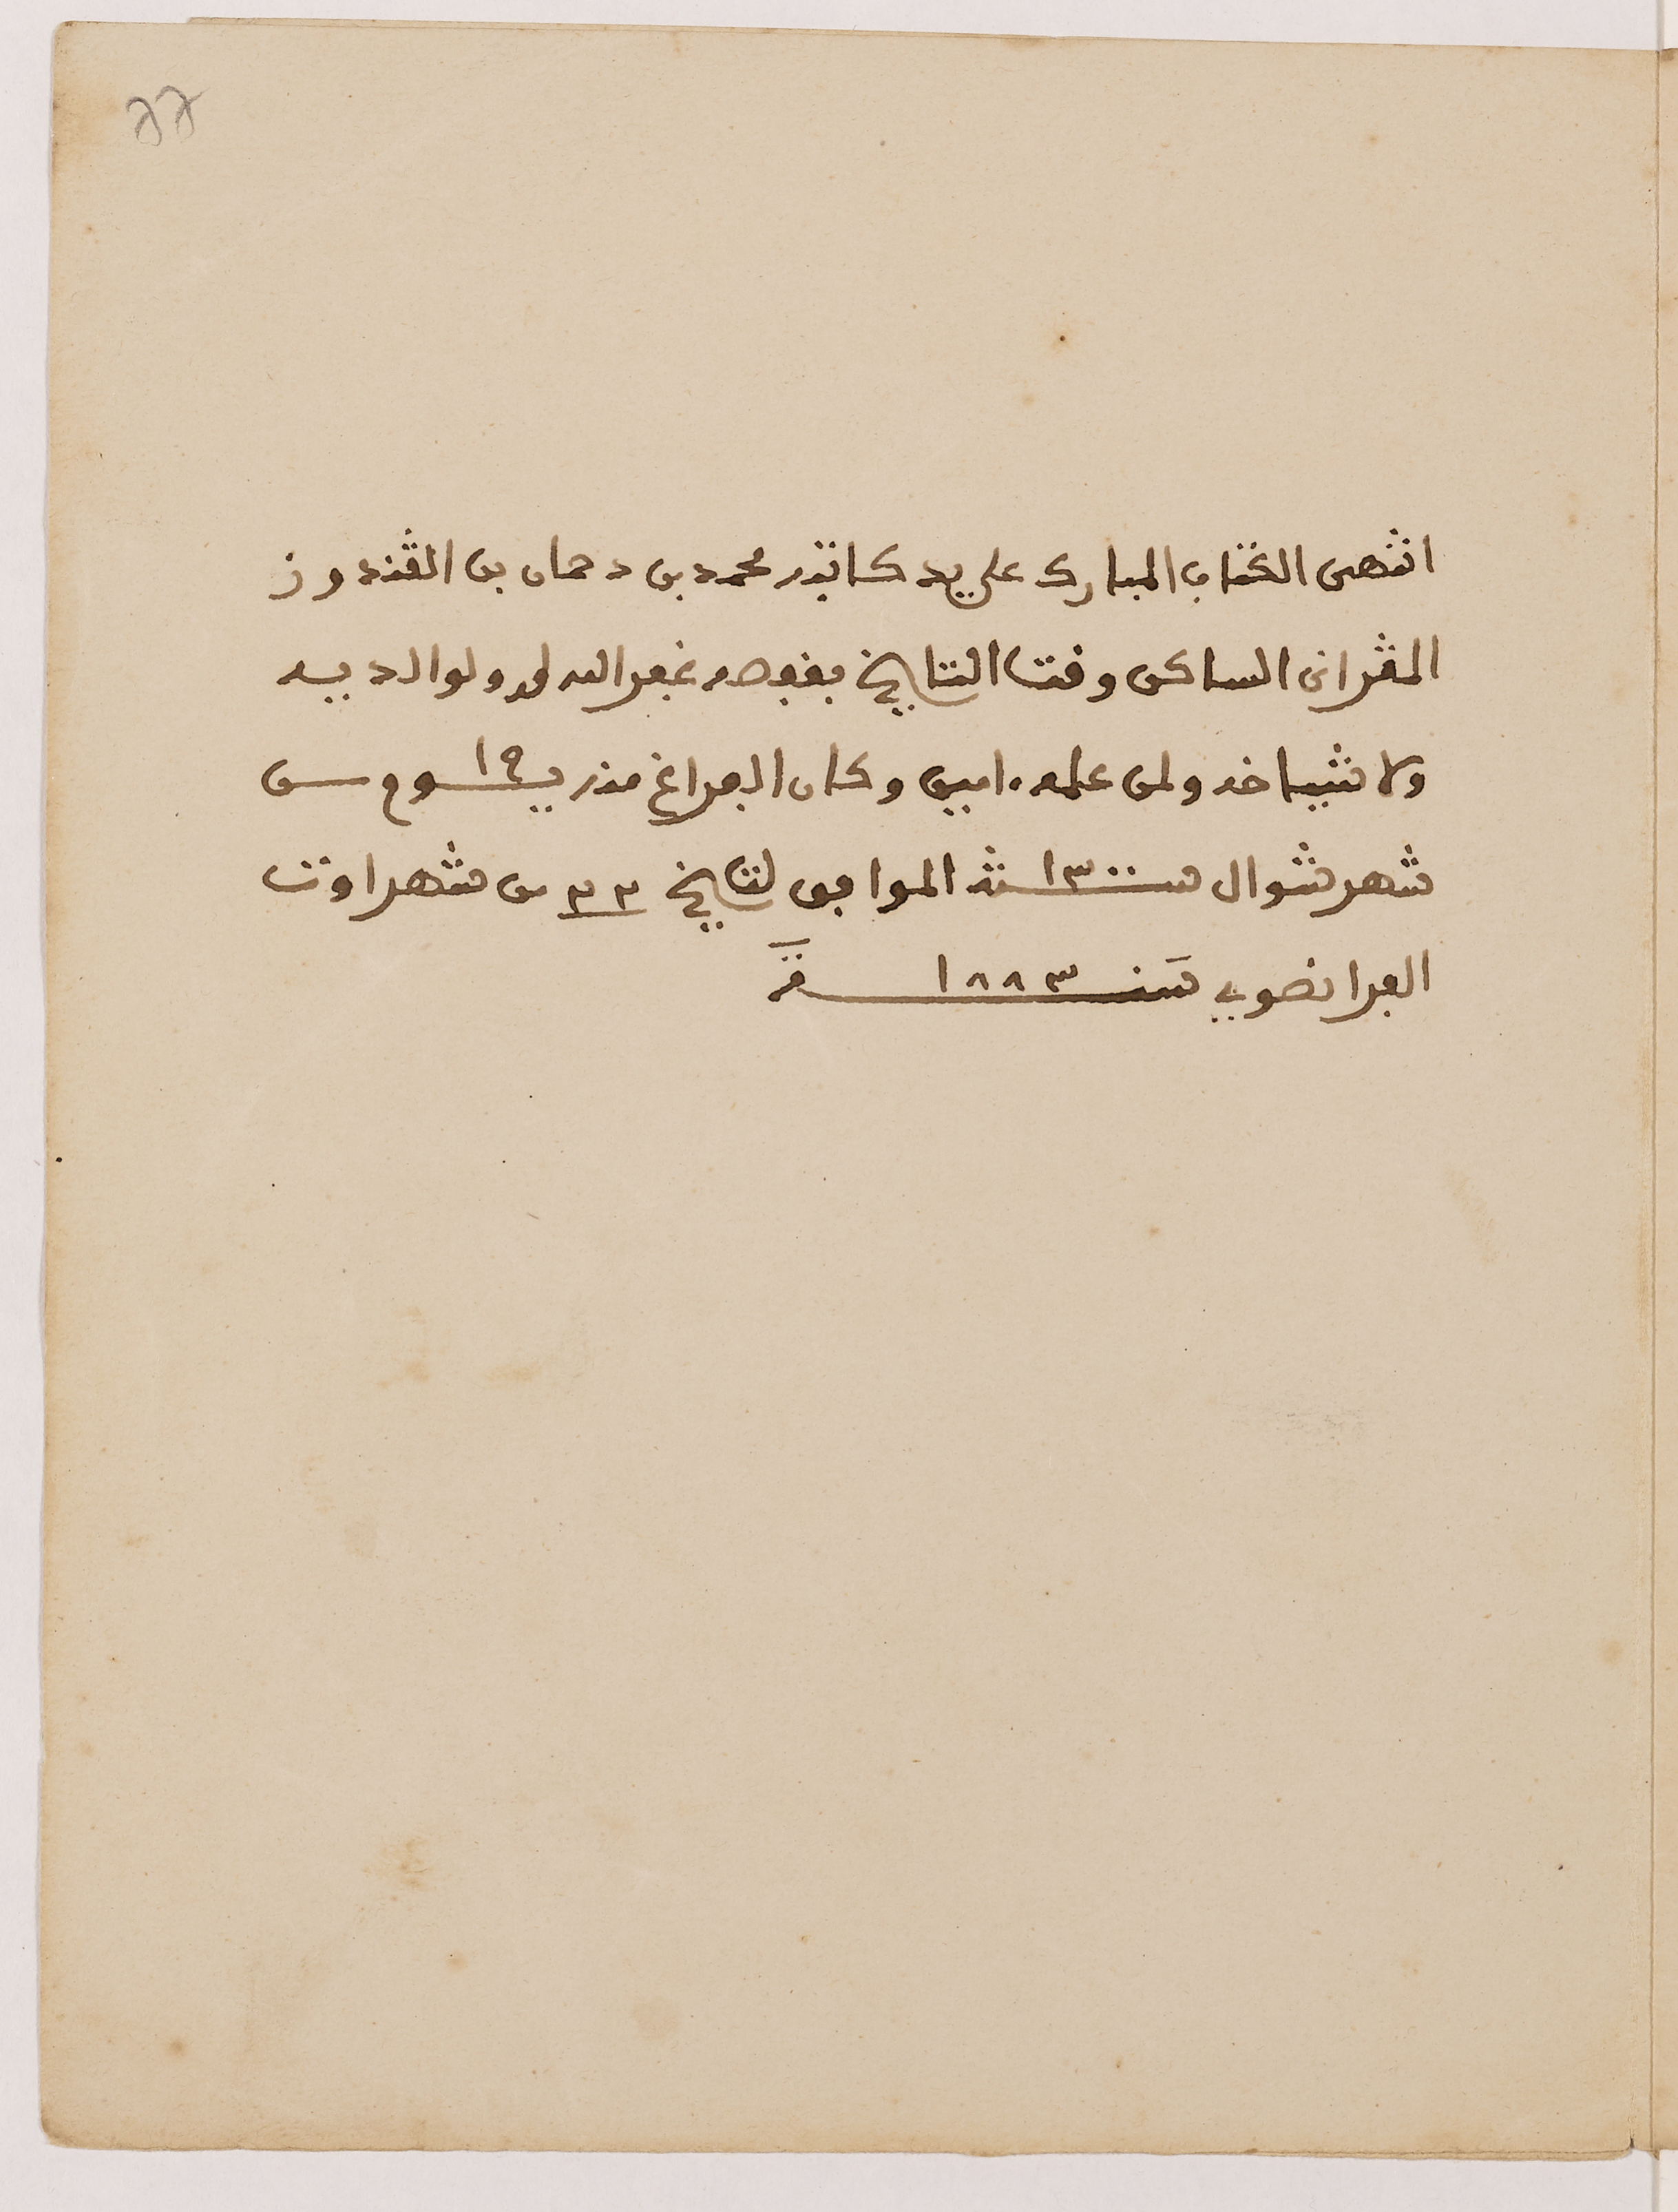 ٢٢
انتهى الكتاب المبارك على يد كاتبه محمد بن دحمان بن الڤندوز
المڤرانى الساكن وقت التاريخ بقفصه غفر الله له ولوالديه
ولاشياخه ولمن علمه ءامين وكان الفراغ منه يـ١٩ـوم مـن
شهر شوال سـ١٣٠٠ـنة الموافق لتاريخ ٢٣ من شهر اوت
الفرانصوي سنـ١٨٨٣ـة